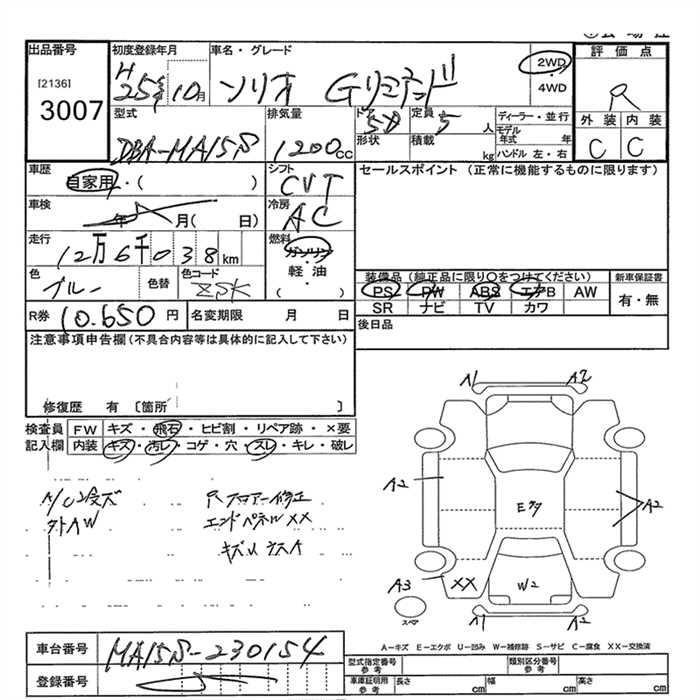 出品番号
[2136]
3007
初度登録年月
H 25年 10月
車名・グレード
ソリオ Gリミテッド
2WD
・
4WD
評価点
R
外装 内装
C C
型式
DBA-MA15S
排気量
1200cc
ドア 5D
形状
定員 5人
積載 kg
ディーラー・並行
モデル年式 年
ハンドル 左・右
車歴
自家用・( )
シフト
CVT
セールスポイント (正常に機能するものに限ります)
車検
年 月( 日)
冷房
AC
走行
12万6千038km
燃料
ガソリン
・
軽・油
( )
色
ブルー
色替
色コード
ZSK
装備品(純正品に限り○をつけてください)
PS PW ABS エアB AW
SR ナビ TV カワ
新車保証書
有・無
R券 10.650円
名変期限 月 日
後日品
注意事項申告欄(不具合内容等は具体的に記入して下さい)
修復歴 有 〔箇所 〕
検査員記入欄
FW キズ・飛石・ヒビ割・リペア跡・×要
内装 キズ・汚レ・コゲ・穴・スレ・キレ・破レ
外AW
Rフロアー修正
エンドパネルXX
A1 A2
A2
A2
A3 XX
W2
A1 A2
スペア
A-キズ E-エクボ U-凹み W-補修跡 S-サビ C-腐食 XX-交換済
車台番号
MA15S-230154
登録番号
型式指定番号
参考
類別区分番号
参考
車庫証明用
参考
長さ cm 幅 cm 高さ cm